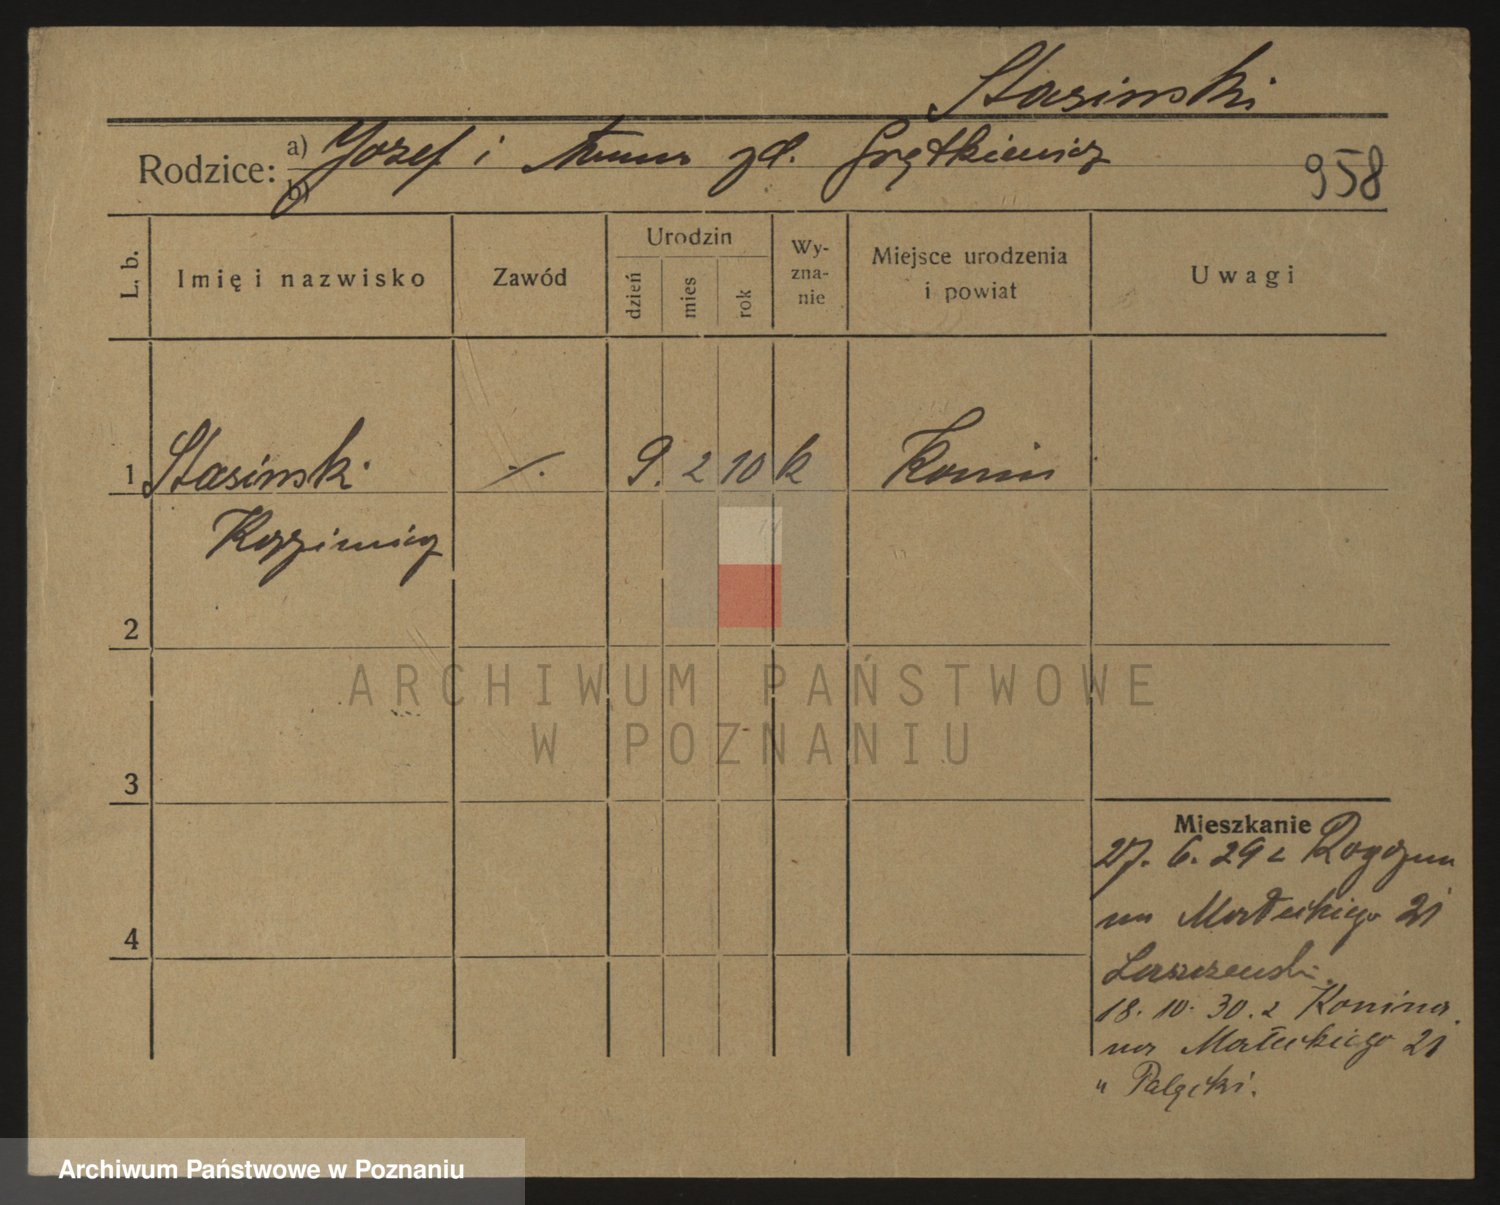 Stasinski
Rodzice: a) Józef i Anna zd. Grętkiewicz
b)
958
L. b.
Imię i nazwisko
Zawód
Urodzin
dzień
mies
rok
Wy-
zna-
nie
Miejsce urodzenia
i powiat
Uwagi
1 Stasinski ./. 9. 2 10 k Konin
Kazimierz
2
3
4
Mieszkanie
27. 6. 29 z Rogozna
na Małeckiego 21
Laszzewski.
18. 10. 30. z Konina.
na Małeckiego 21
u Palącki.
ARCHIWUM PAŃSTWOWE
W POZNANIU
Archiwum Państwowe w Poznaniu